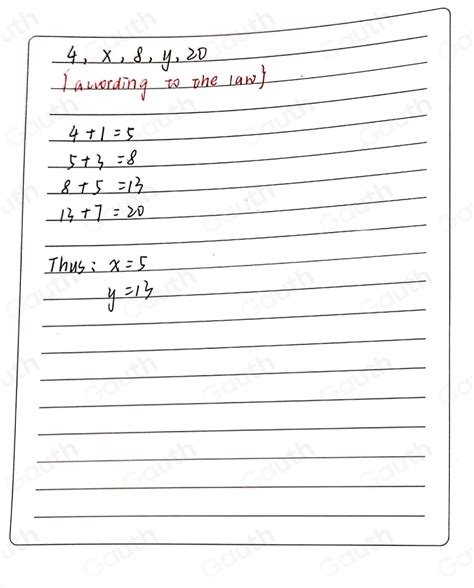 4, x, 8, y, 20
{according to the law}
4+1=5
5+3=8
8+5=13
13+7=20
Thus: x=5
y=13